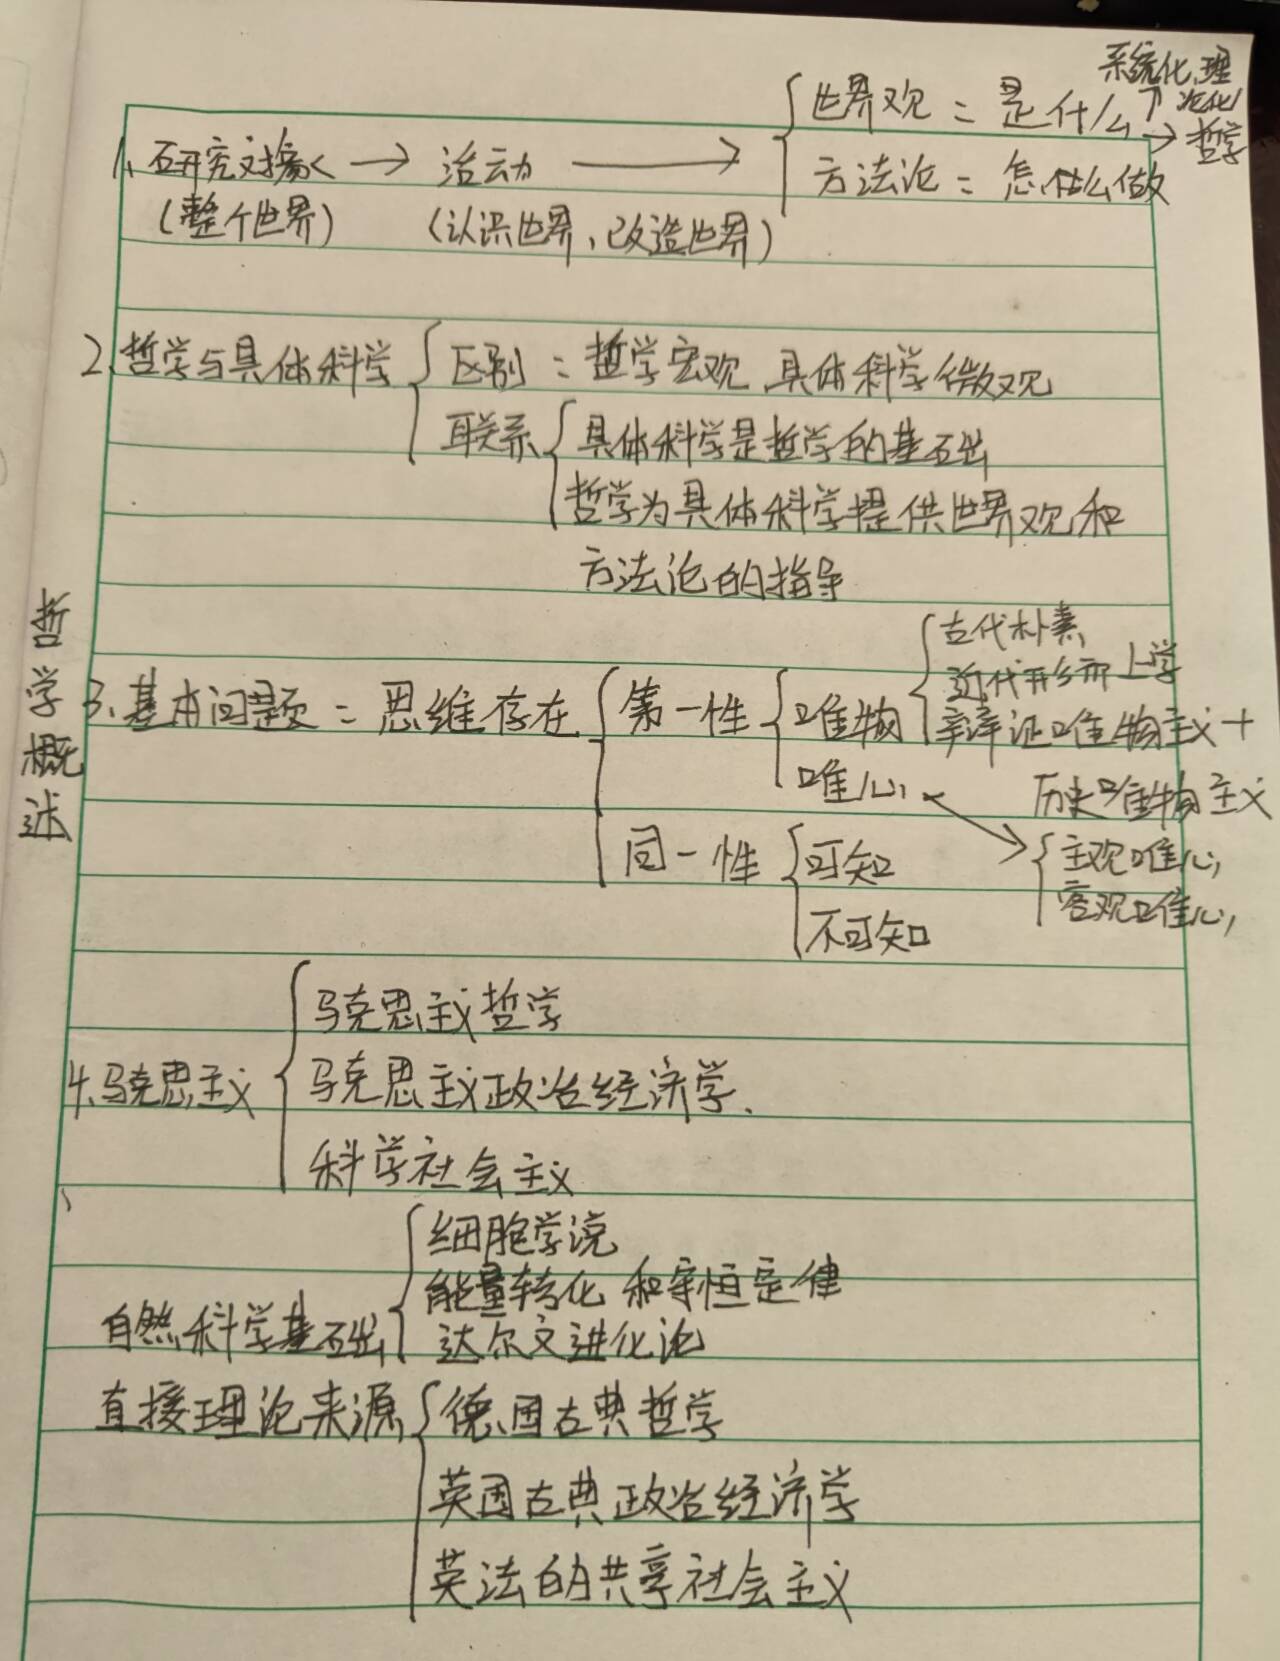 哲学概述
系统化,理
论化
世界观 = 是什么 → 哲学
1. 研究对象 → 活动 →
方法论 = 怎么做
(整个世界) (认识世界,改造世界)
2. 哲学与具体科学
区别 = 哲学宏观 具体科学微观
联系
具体科学是哲学的基础
哲学为具体科学提供世界观和
方法论的指导
3. 基本问题 = 思维存在
第一性
唯物
古代朴素
近代形而上学
辩证唯物主义 +
历史唯物主义
唯心
主观唯心
客观唯心
同一性
可知
不可知
4. 马克思主义
马克思主义哲学
马克思主义政治经济学.
科学社会主义
自然科学基础
细胞学说
能量转化和守恒定律
达尔文进化论
直接理论来源
德国古典哲学
英国古典政治经济学
英法的共享社会主义